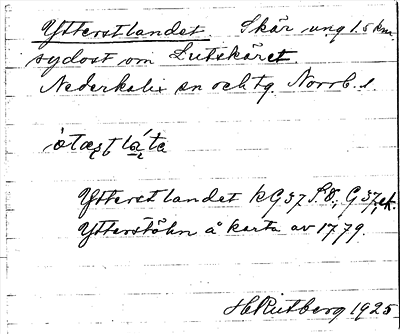 Ytterstlandet. Skär ung 1.5 km
sydost om Lutskäret.
Nederkalix sn och tg. Norrb. l.
Ytterstlandet kG 37 S.O; G 37, ek.
Ytterstöhn å karta av 1779.
H Rutberg 1925